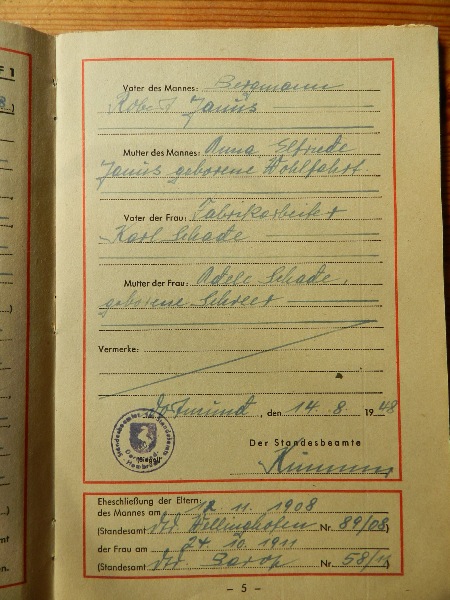 Vater des Mannes: Bergmann
Robert Janus
Mutter des Mannes: Anna Elfriede
Janus geborene Wohlfahrt
Vater der Frau: Fabrikarbeiter
Karl Schade
Mutter der Frau: Adele Schade,
geborene
Vermerke:
Dortmund, den 14. 8. 1948
(Siegel)
Der Standesbeamte
Eheschließung der Eltern:
des Mannes am 12. 11. 1908
(Standesamt Wellinghofen Nr. 89/08)
der Frau am 24. 10. 1911
(Standesamt Barop Nr. 58/11)
– 5 –